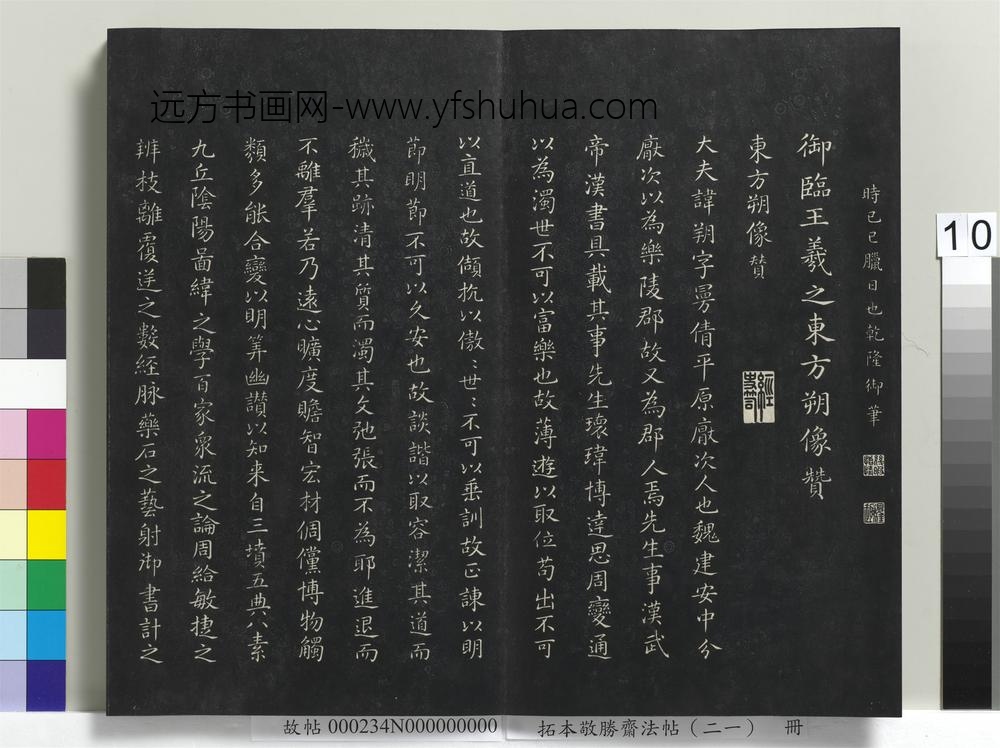 远方书画网-www.yfshuhua.com
時己巳臘日也乾隆御筆
御臨王羲之東方朔像贊
東方朔像贊
大夫諱朔字曼倩平原厭次人也魏建安中分
厭次以為樂陵郡故又為郡人焉先生事漢武
帝漢書具載其事先生瓌瑋博達思周變通
以為濁世不可以富樂也故薄遊以取位苟出不可
以直道也故頡抗以傲〻世〻不可以垂訓故正諫以明
節明節不可以久安也故談諧以取容潔其道而
穢其跡清其質而濁其文弛張而不為耶進退而
不離羣若乃遠心曠度贍智宏材倜儻博物觸
類多能合變以明筭幽讚以知来自三墳五典八素
九丘陰陽啚緯之學百家衆流之論周給敏捷之
辨技離覆逆之數経脉藥石之藝射御書計之
10
故帖 000234N000000000
拓本敬勝齋法帖（二一） 冊